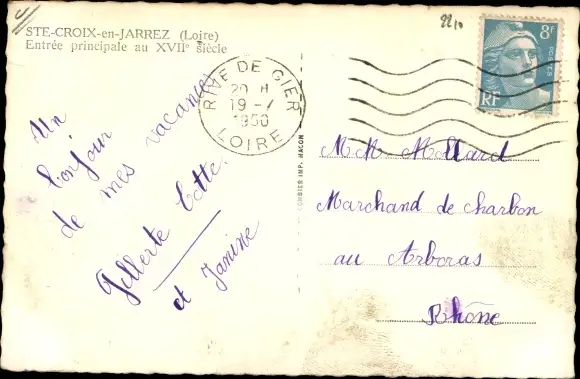 STE-CROIX-en-JARREZ (Loire)
Entrée principale au XVIIe siècle
2210
8F
POSTES
RF
RIVE DE GIER
20 H
19 - 7
1950
LOIRE
Un
bonjour
de mes vacances
Gilberte Cotte.
et Janine
COMBIER IMP. MACON
Mollard
Marchand de charbon
au Arboras
Rhône